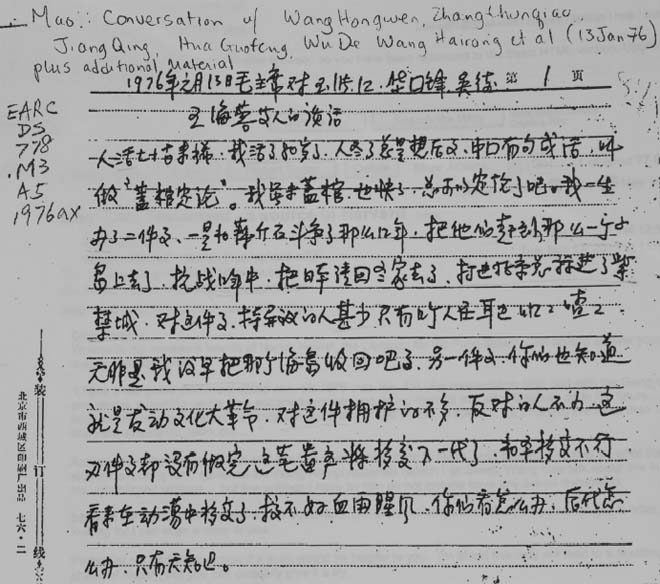 Mao: Conversation w/ Wang Hongwen, Zhang Chunqiao
Jiang Qing, Hua Guofeng, Wu De Wang Hairong et al (13 Jan 76)
plus additional material
1976年元月13日毛主席对王张江、华口锋 吴德 第 1 页
王海蓉等人的谈话
EARC
DS
778
.M3
A5
1976ax
人活七十古来稀,我活了八十多了,人老了总是想后事,中口有句成话,叫
做"盖棺定论"。我虽未盖棺,也快了,总可以定论了吧。我一生
办了二件事、一是和蒋介石斗争了那么几十年,把他们赶到那么一个小
岛上去了,抗战八年中,把日本请回老家去了,打进北京总算进了紫
禁城,对这件事,持异议的人甚少,只有几个人在耳边叽叽喳喳
无非是我没早把那个海岛收回吧了,另一件事,你们也知道
就是发动文化大革命,对这件拥护的不多,反对的人不少,这
两件事都没有做完,这笔遗产将移交下一代了,和平移交不行
看来在动荡中移交了,搞不好血雨腥风,你们看怎么办,后代怎
么办,只有天知道。
装订线
七六·二